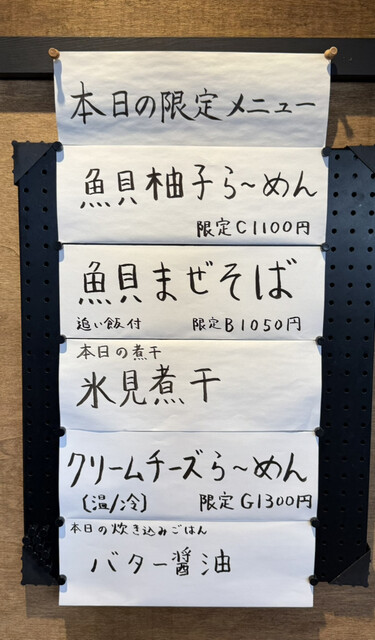 本日の限定メニュー
魚貝柚子ら〜めん
限定C1100円
魚貝まぜそば
追い飯付 限定B1050円
本日の煮干
氷見煮干
クリームチーズら〜めん
〔温/冷〕 限定G1300円
本日の炊き込みごはん
バター醤油